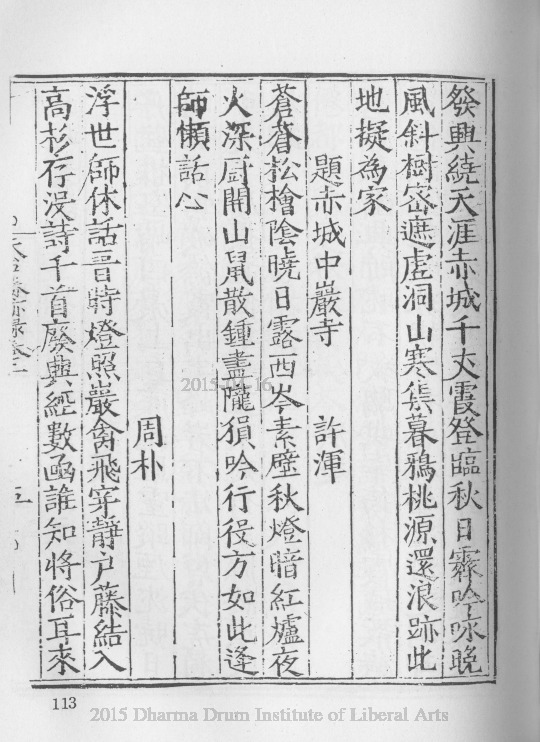 發興繞天涯赤城千丈霞登臨秋日霽吟咏晚
風斜樹密遮虛洞山寒集暮鴉桃源還浪跡此
地擬為家
題赤城中巖寺 許渾
蒼蒼松檜陰曉日露西岑素壁秋燈暗紅爐夜
火深厨開山鼠散鍾盡隴猿吟行役方如此逢
師懶話心
周朴
浮世師休話晋時燈照巖禽飛穿靜户藤結入
高杉存没詩千首廢興經數函誰知將俗耳來
113
2015-04-16
2015 Dharma Drum Institute of Liberal Arts